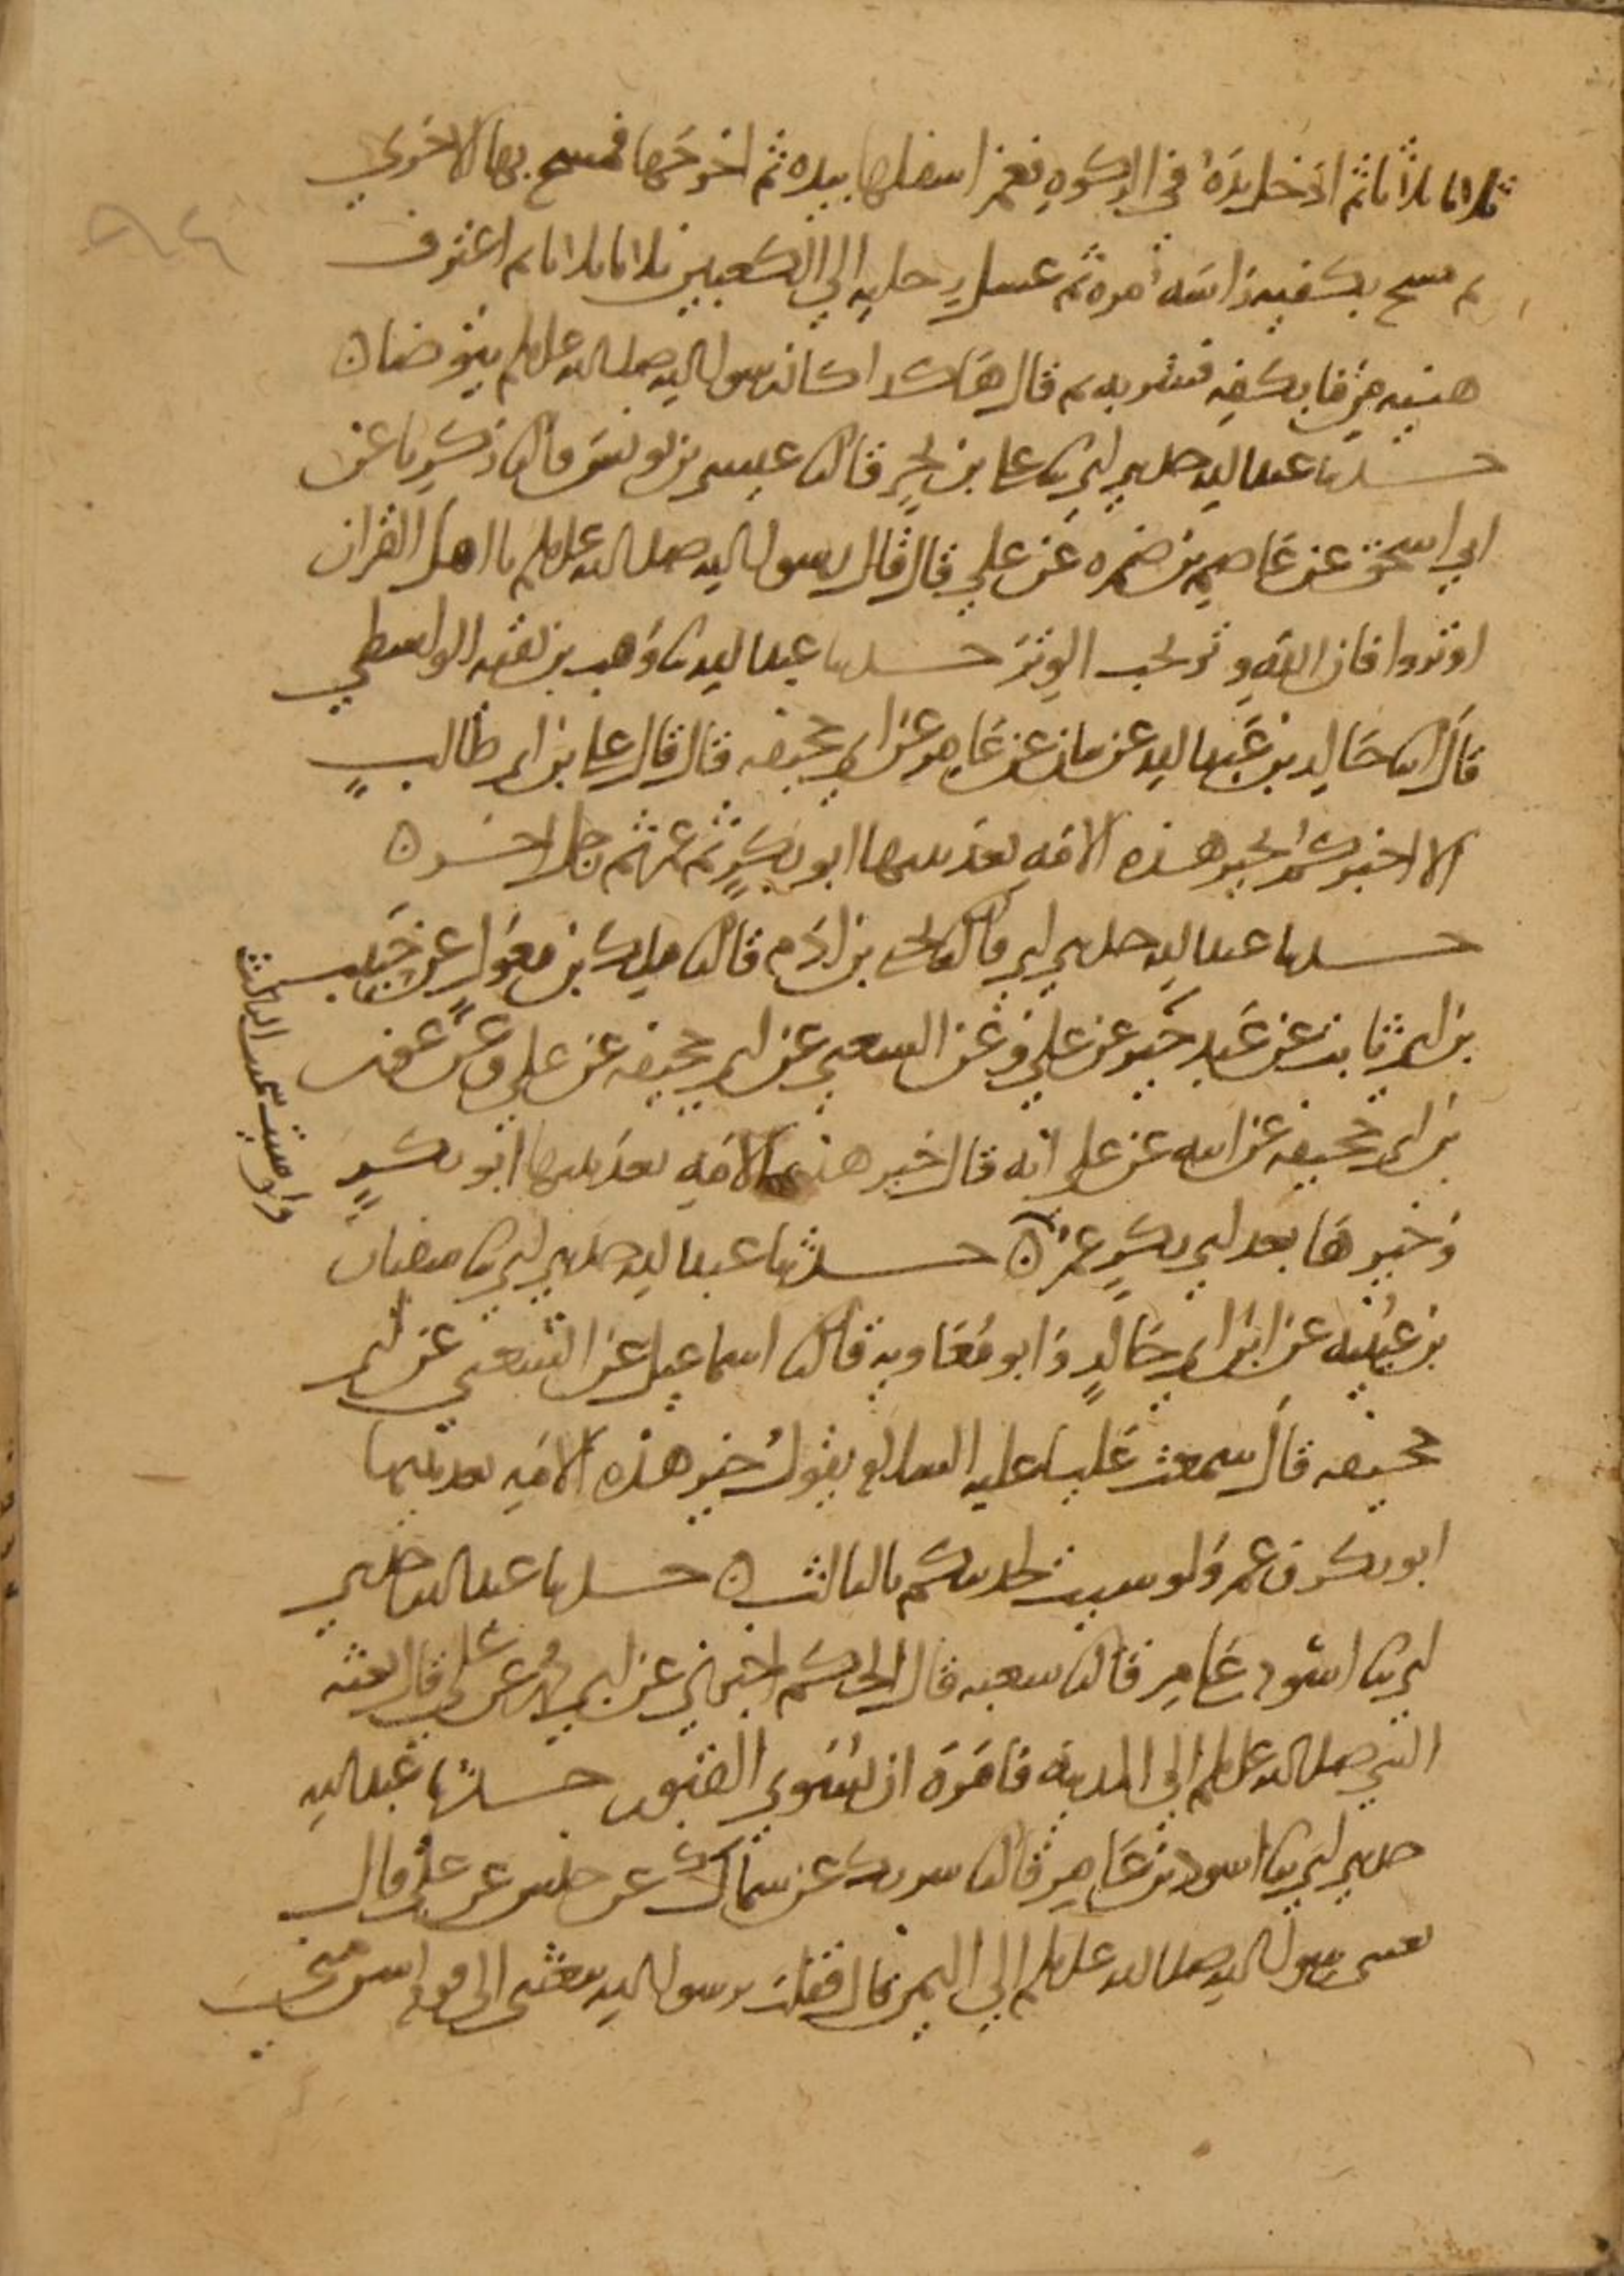 ثلاثا ثلاثا ثم ادخل يده في الركوه فغمز اسفلها بيده ثم اخرجها فمسح بها الاخري
ثم مسح بكفيه راسه مره ثم غسل رجليه الي الكعبين ثلاثا ثلاثا ثم اغترف
هنيه من ما بكفه فشربه ثم قال هكذا كان رسول الله صلى الله عليه وسلم يتوضا ن
حدثنا عبد الله حدثني ابي ثنا علي بن بحر قال ثنا عيسى بن يونس قال ثنا زكريا عن
ابي اسحق عن عاصم بن ضمره عن علي قال قال رسول الله صلى الله عليه وسلم يا اهل القران
اوتروا فان الله وتر يحب الوتر حدثنا عبد الله ثنا وهب بن بقيه الواسطي
قال انا خالد بن عبد الله عن بيان عن عامر عن ابي جحيفه قال قال علي بن ابي طالب
الا اخبركم بخير هذه الامه بعد نبيها ابو بكر ثم عمر ثم رجل اخر ن
حدثنا عبد الله حدثني ابي قال ثنا يحيى بن ادم قال ثنا ملك بن مغول عن حبيب
بن ابي ثابت عن عبد خير عن علي وعن الشعبي عن ابي جحيفه عن علي وعن عون
بن ابي جحيفه عن ابيه عن علي انه قال خير هذه الامه بعد نبيها ابو بكر
وخيرها بعد ابي بكر عمر ن حدثنا عبد الله حدثني ابي ثنا سفيان
بن عيينه عن ابن ابي خالد وابو معاويه قال ثنا اسماعيل عن الشعبي عن ابي
جحيفه قال سمعت عليا عليه السلام يقول خير هذه الامه بعد نبيها
ابو بكر وعمر ولو شيت لحدثتكم بالثالث ن حدثنا عبد الله حدثني
ابي ثنا اسود عامر قال ثنا شعبه قال الحكم اخبرني عن ابي محمد عن علي قال بعثه
النبي صلى الله عليه وسلم الي المدينه فامره ان يسوي القبور حدثنا عبد الله
حدثني ابي ثنا اسود بن عامر قال ثنا شريك عن سماك عن حنش عن علي قال
بعثني رسول الله صلى الله عليه وسلم الي اليمن قال فقلت يرسول الله تبعثني الى قوم اسن مني
ولو شيت سميت الثالث